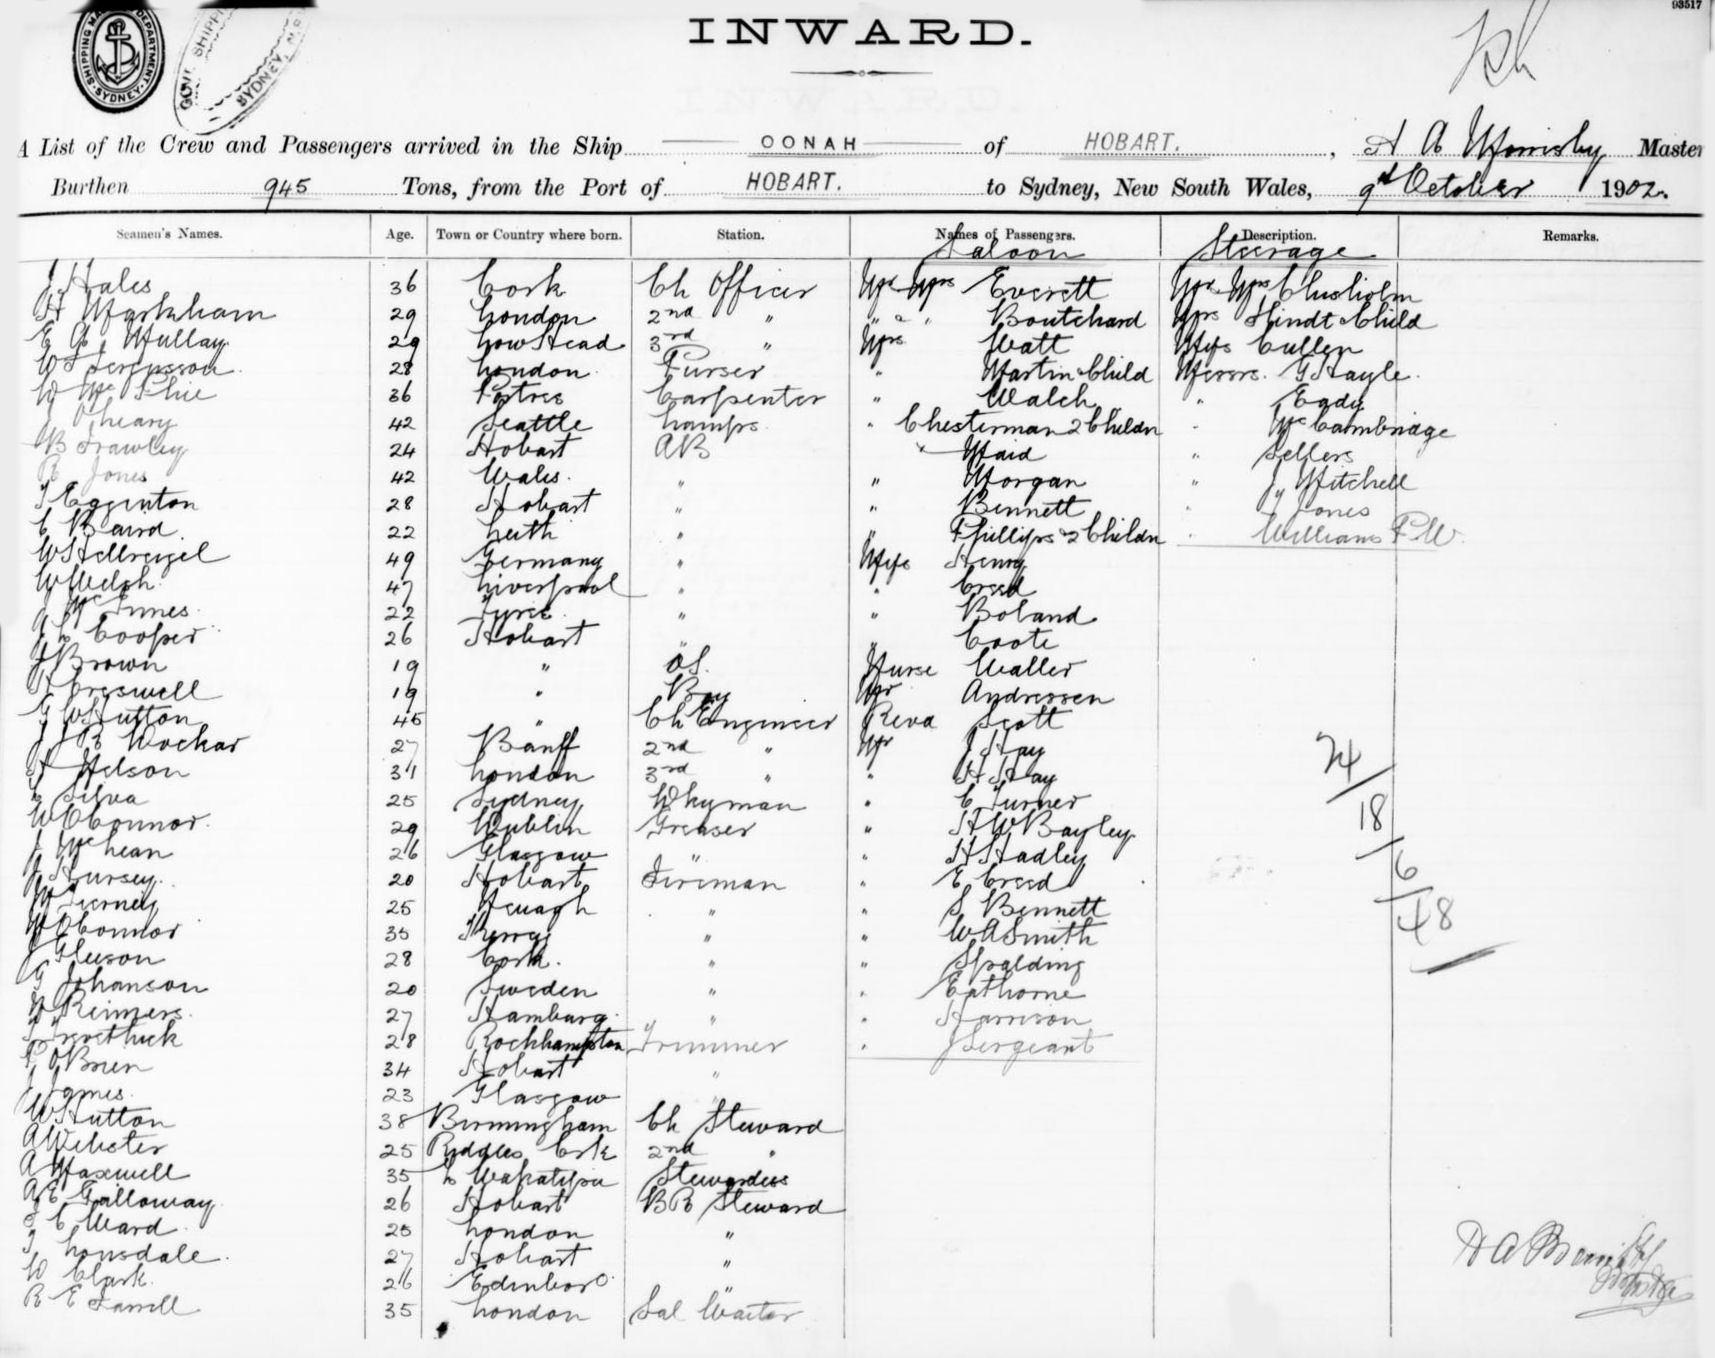 93517
SHIPPING MA DEPARTMENT
SYDNEY
SHIPPI
SYDNEY, N.S
INWARD.
A List of the Crew and Passengers arrived in the Ship OONAH of HOBART. , Master
Burthen 945 Tons, from the Port of HOBART. to Sydney, New South Wales, 9th October 1902.
Seamen's Names. Age. Town or Country where born. Station. Names of Passengers. Description. Remarks.
Saloon Steerage
J Hales 36 Cork Ch Officer Mr Mrs Everett Mr Mrs Chisholm
H Markham 29 London 2nd " " " Boutchard Mrs Lindt & Child
E A Mullay 29 3rd " Mrs Watt Miss Cullen
W Fergusson 28 London Purser " Martin & Child Messrs. G Hayle.
W McPhie 36 Carpenter " Walch " Eady
J O'Leary 42 Seattle Lamps " Chesterman 2 Childn " McCambridge
B Frawley 24 Hobart AB " Maid " Sellers
R Jones 42 Wales. " " Morgan " J Mitchell
T Egginton 28 Hobart " " Bennett " J Jones
C Baird 22 Leith " " Phillips & 2 Childn " Williams P.W.
W 49 Germany " Miss Henry
W Welsh 47 Liverpool " " Creed
McInnes 22 Tyree " " Boland
J L Cooper 26 Hobart " " Coote
J Brown 19 " OS. Nurse Waller
H Creswell 19 " Boy Mr Andressen
G W Hutton 45 " Ch Engineer Revd Scott
J R Wockar 27 Banff 2nd " Mr J Hay
H Nelson 31 London 3rd " " H Hay
Silva 25 Sydney Whyman " E Turner
W O'Connor. 29 Dublin Greaser " H W Bayley
J McLean 26 Glasgow " " H Hadley
J Hursey. 20 Hobart Fireman " E Creed
M Tierney 25 " " S Bennett
O'Connor 35 Kerry " " W A Smith
J Gleeson 28 Cork. " " Spalding
G Johanson 20 Sweden " " Eathorne
H Reimers 27 Hamburg " " Harrison
28 Rockhampton Trimmer " J Sergeant
P O'Brien 34 Hobart "
J James. 23 Glasgow "
W Hutton 38 Birmingham Ch Steward
A Webster 25 2nd "
A Maxwell 35 L Wakatipu Stewardess
A E Galloway 26 Hobart BR Steward
C Ward 25 London "
T Lonsdale 27 Hobart "
W Clark 26 Edinboro "
R E Farrell 35 London Sal Waiter
24
18
6
48